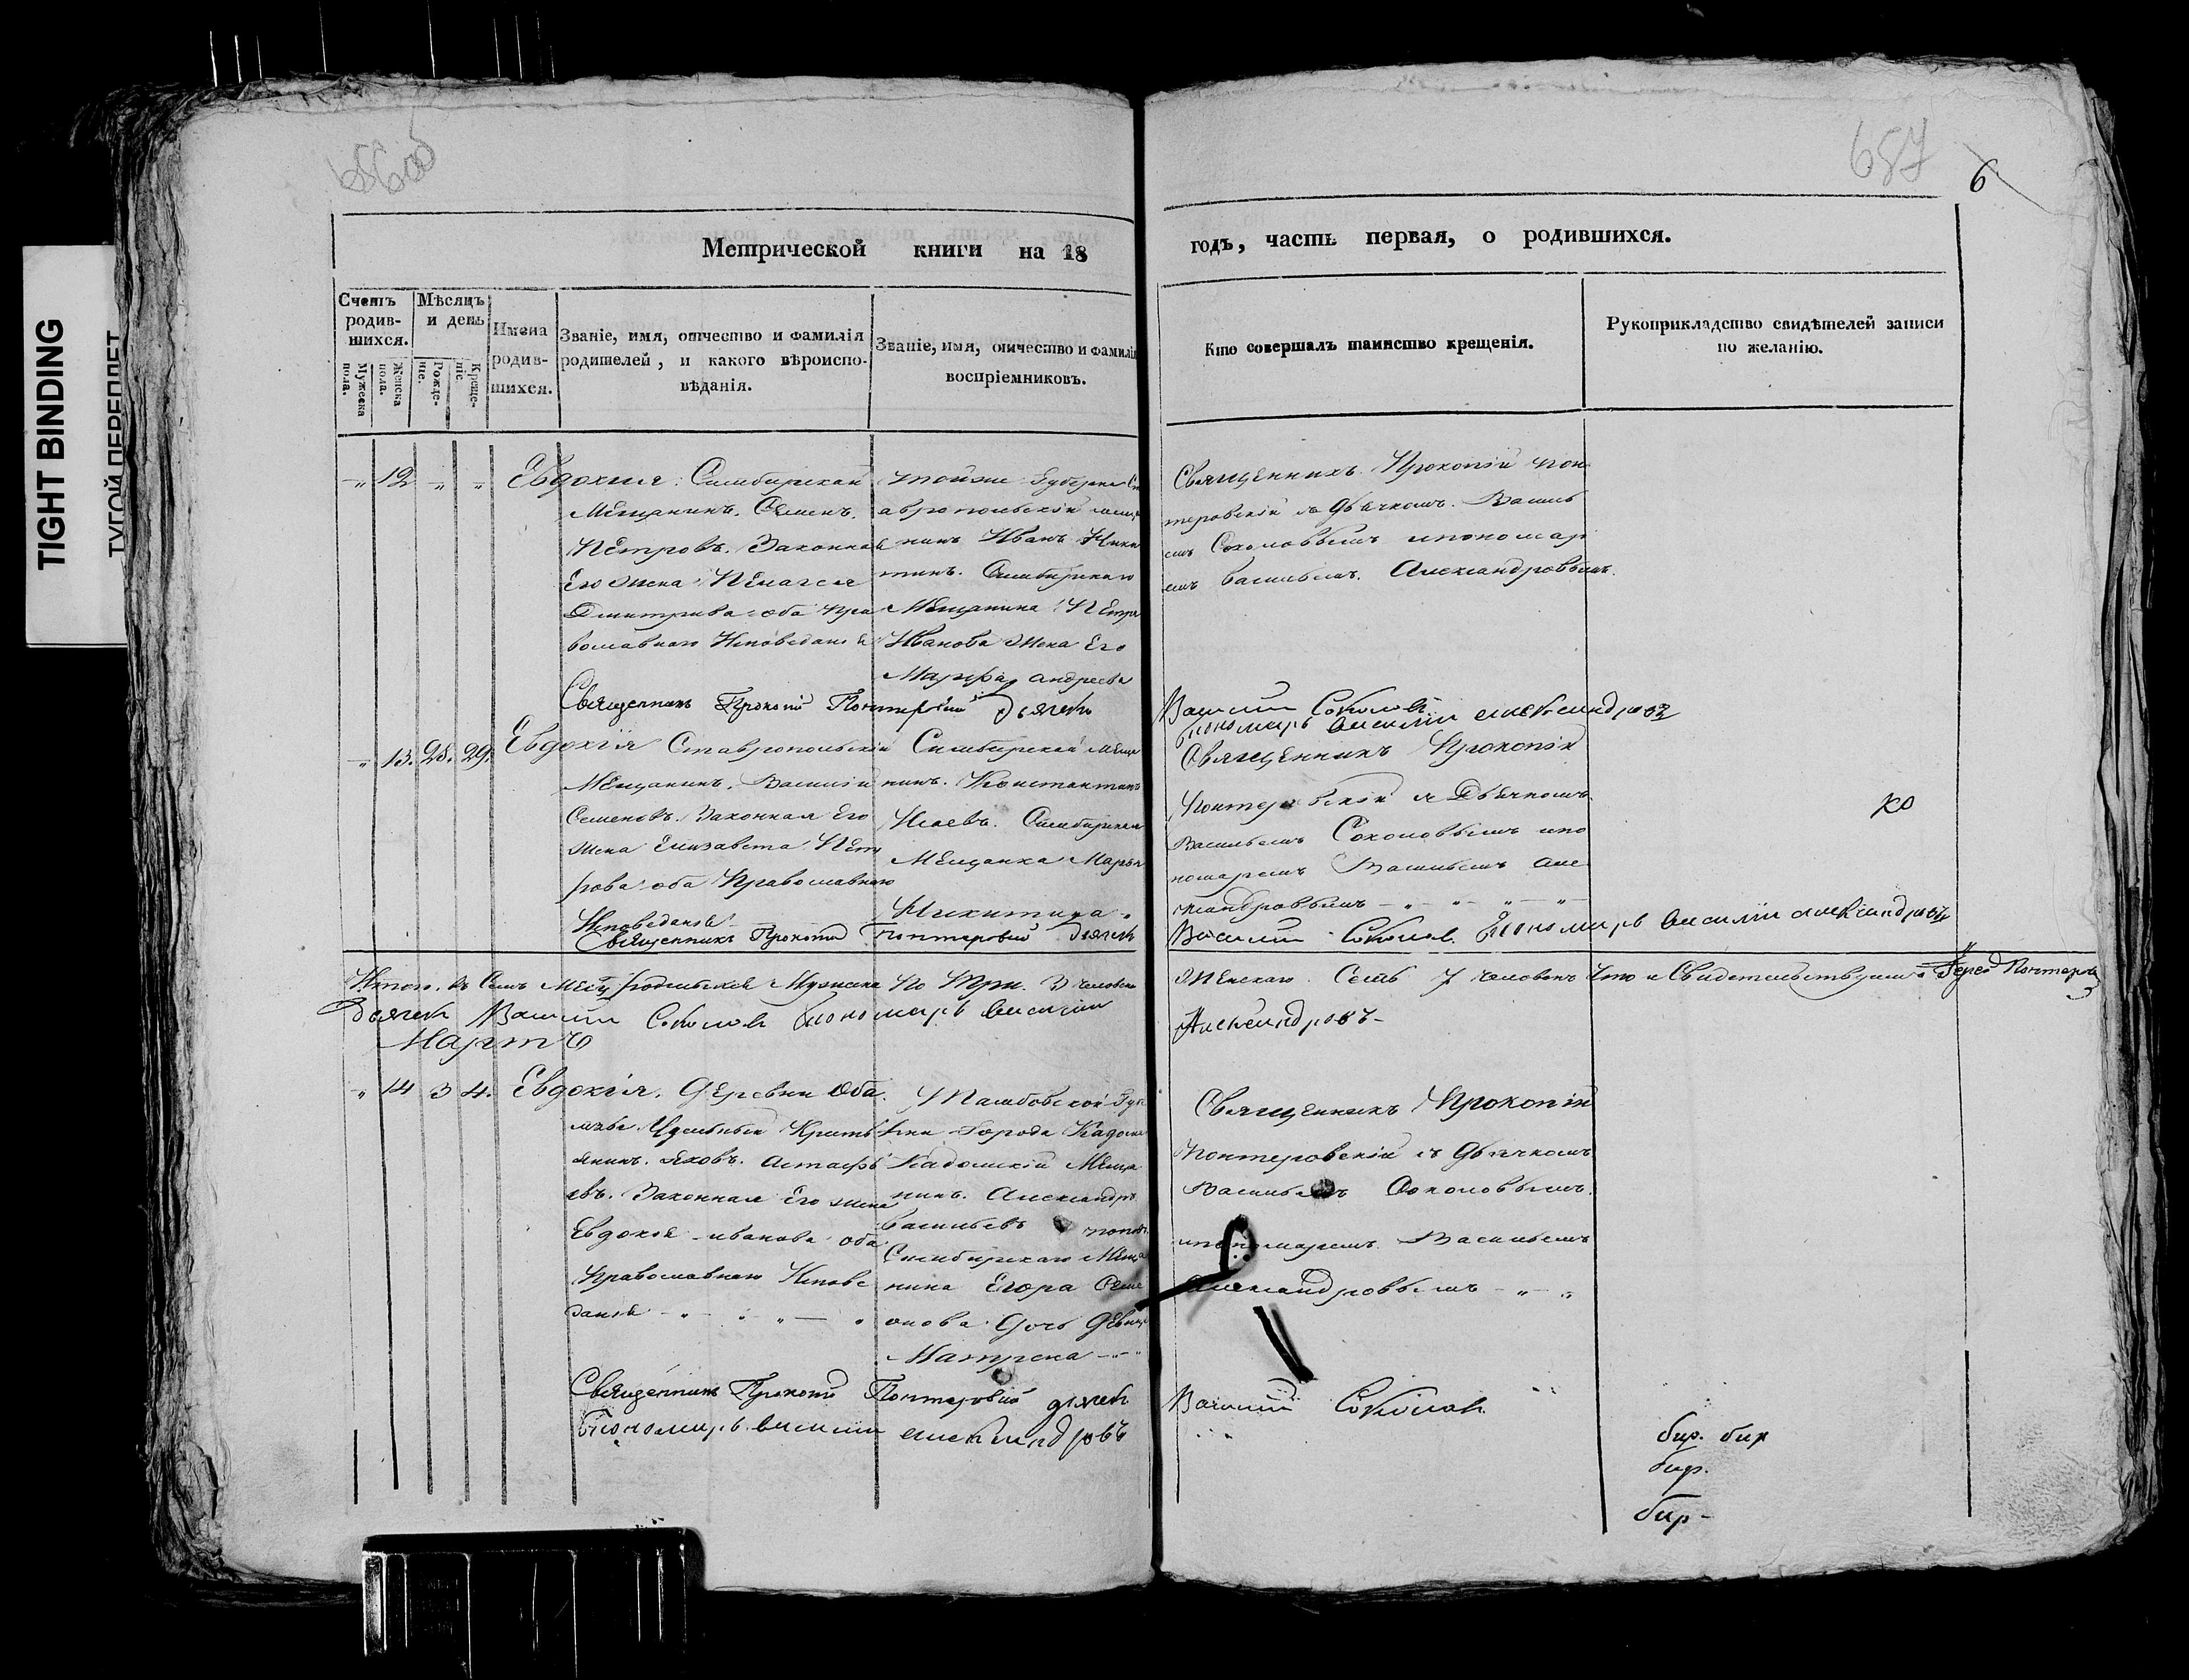 TIGHT BINDING
ТУГОЙ ПЕРЕПЛЕТ
686об
687
6
Метрической книги на 18
годъ, часть первая, о родившихся.
Счетъ родив-шихся.
Мужеска пола.
Женска пола.
Мѣсяцъ и день
Рожде-ніе.
Креще-ніе.
Имена родив-шихся.
Званіе, имя, отчество и фамилія родителей, и какого вѣроиспо-вѣданія.
Званіе, имя, отчество и фамилія воспріемниковъ.
Кто совершалъ таинство крещенія.
Рукоприкладство свидѣтелей записи по желанію.
12 Евдокия
Симбирской
Мещанинъ. Семенъ.
Петровъ. Законная
Его жена Пелагея
Дмитрива оба пра
вославнаго Исповедания
тойже Губерни Ст
авропольской меща
нинъ Иванъ Ники
тинъ. Симбирскаго
Мещанина Петра
Иванова жена Его
Марфа андреева
Священникъ Прокопій Пон
теровскій съ дьячкомъ. Василь
емъ Соколовымъ ипономар
емъ васильемъ. Александровымъ.
Священникъ Прокопій Понтеровский Дьячекъ
Василий Соколовъ
пономарь василий александровъ
13. 28. 29. Евдокія
Ставропольский
Мещанинъ. Василий
Семеновъ. Законная Его
жена Елизавета Пет
рова оба Православнаго
Исповедания
Симбирской меща
нинъ. Константинъ
Исаевъ. Симбирская
Мещанка Марья
Никитина
Священникъ Прокопій
Понтеровскій съ Дьячкомъ
Васильемъ Соколовымъ ипо
номаремъ Васильемъ Але
ксандровымъ
ко
Священникъ Прокопій Понтеровский Дьячекъ
Василий Соколовъ. Пономарь василий александровъ
Итого. въ Семъ Месяц родившихся Мужеска По Три. 3 человека
Женскаго Семь 7 человекъ Что и Свидетельствуемъ Иерей Понтеровский
Дьячекъ Василий Соколовъ пономарь василий
Александровъ
Мартъ
14 3 4. Евдокія.
Деревни
Удельный Кресть
янинъ. Яковъ. Астафь
евъ. Законная Его жена
Евдокия иванова оба
Православнаго Испове
дания
Тамбовской Губ
города Кадома
Кадомский Меща
нинъ. Александръ
васильевъ
Симбирскаго Меща
нина Егора Семе
онова дочь девица
Матрена
Священникъ Прокопій
Понтеровскій съ дьячкомъ
Васильемъ Соколовымъ.
ипономаремъ. Васильемъ
Александровымъ
Священникъ Прокопій Понтеровский дьячекъ
Василий Соколовъ
Пономарь василий александровъ
бир. бир
бир.
бир-